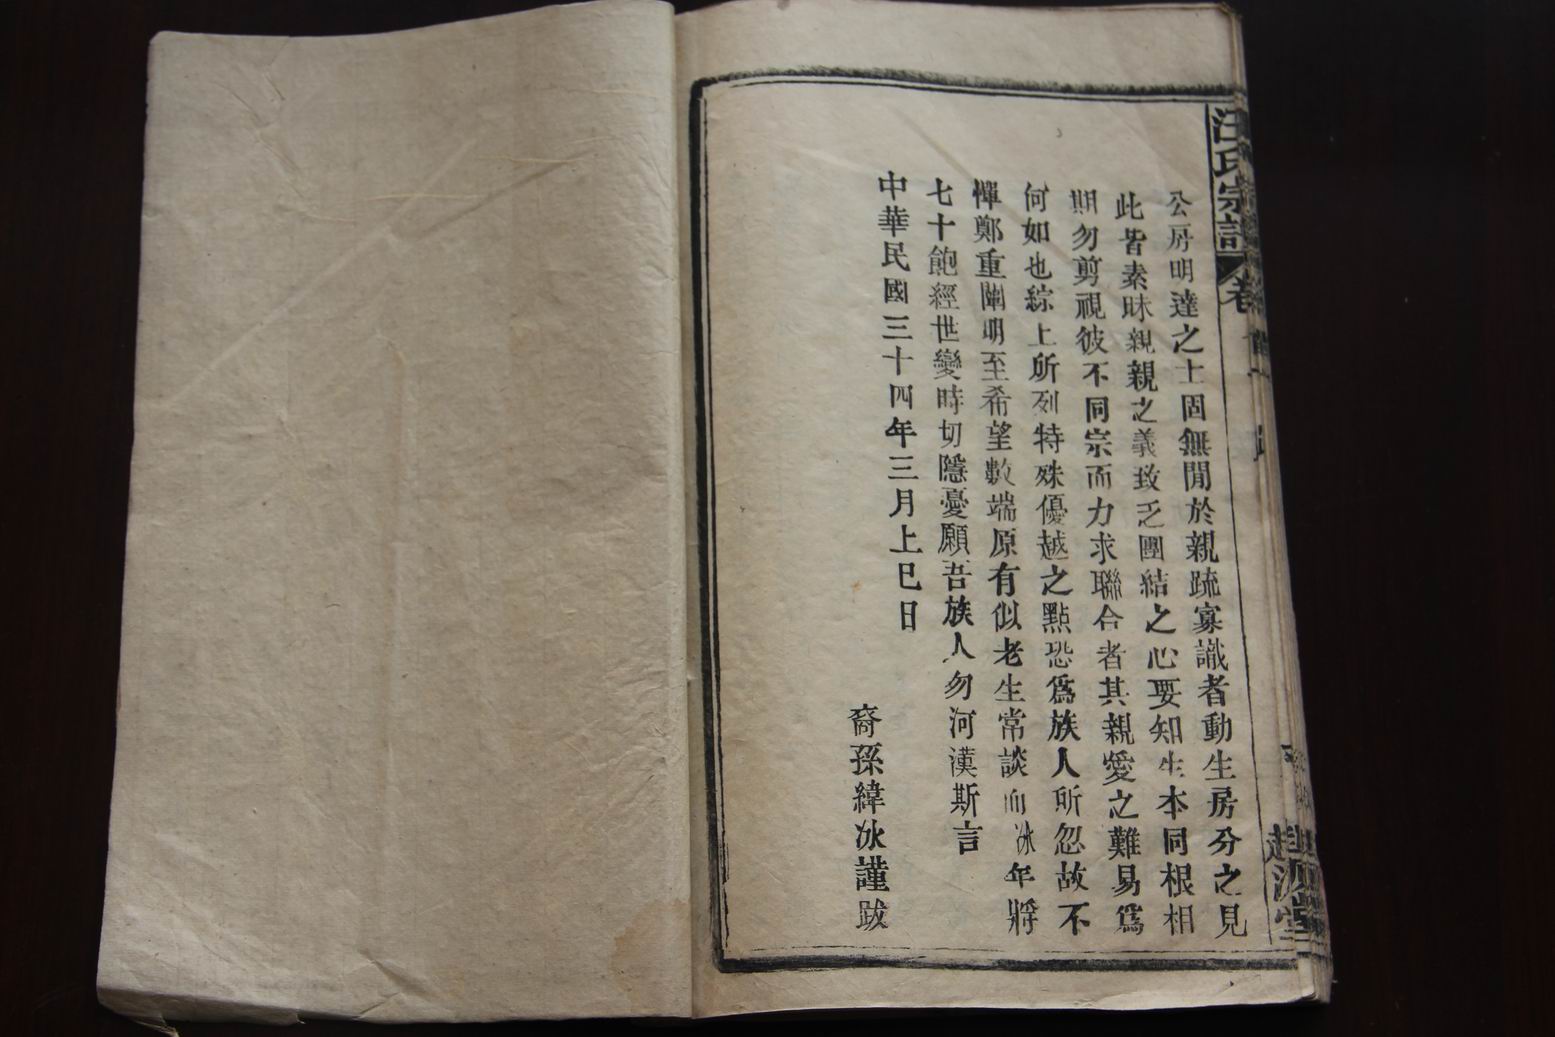 汪氏宗譜
卷
公房明達之士固無閒於親疏寡識者動生房分之見
此皆素昧親親之義致乏團結之心要知生本同根相
期勿剪視彼不同宗而力求聯合者其親愛之難易爲
何如也綜上所列特殊優越之點恐爲族人所忽故不
憚鄭重闡明至希望數端原有似老生常談而冰年將
七十飽經世變時切隱憂願吾族人勿河漢斯言
中華民國三十四年三月上巳日
裔孫緯冰謹跋